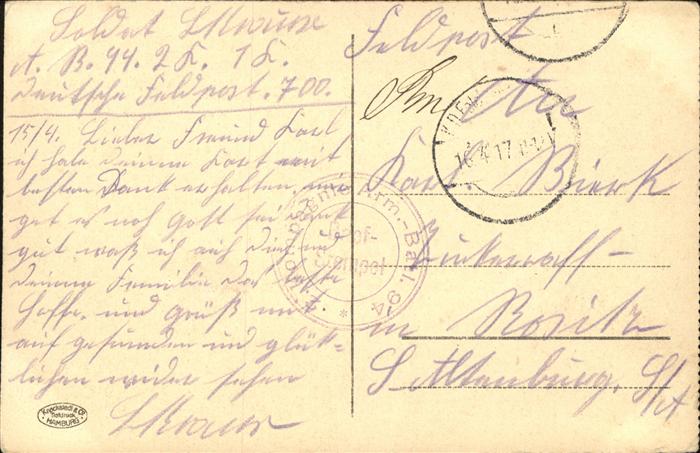 Soldat L Krause
A. B. 94. 2 K. 1 K.
Deutsche Feldpost. 700.
15/4. Lieber Freund Karl
ich habe deine Kart mit
besten Dank erhalten, mir
get es noh Gott sei Dank
gut waß ich auch dier und
deiner Familie das beste
hoffe. und gruß und
auf gesunden und glük-
lichen wieder sehen
L Kraus
Feldpost
An
Karl Bierk
in Rositz
S. Altenburg. S/A
16.4.17.
Arm.-Batl. 94
Brief-
Stempel
Knackstedt & Co
HAMBURG